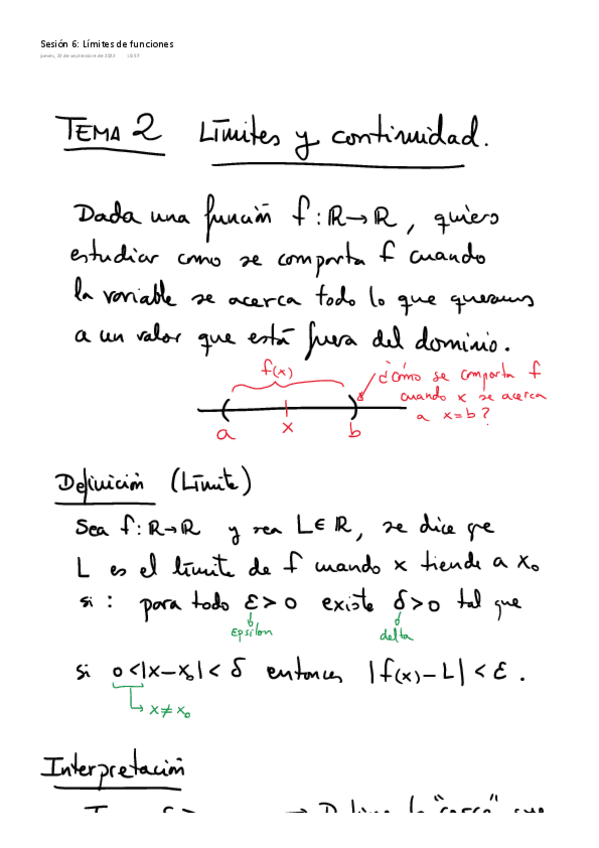 Sesión 6: Límites de funciones
TEMA 2 Límites y continuidad.
Dada una función f: ℝ→ℝ, quiero
estudiar como se comporta f cuando
la variable se acerca todo lo que queramos
a un valor que está fuera del dominio.
f(x)
¿Cómo se comporta f
cuando x se acerca
a x=b?
a x b
Definición (Límite)
Sea f: ℝ→ℝ y sea L∈ℝ, se dice que
L es el límite de f cuando x tiende a x₀
si: para todo ε>0 existe δ>0 tal que
Epsilon delta
si 0<|x-x₀|<δ entonces |f(x)-L|<ε.
x≠x₀
Interpretación